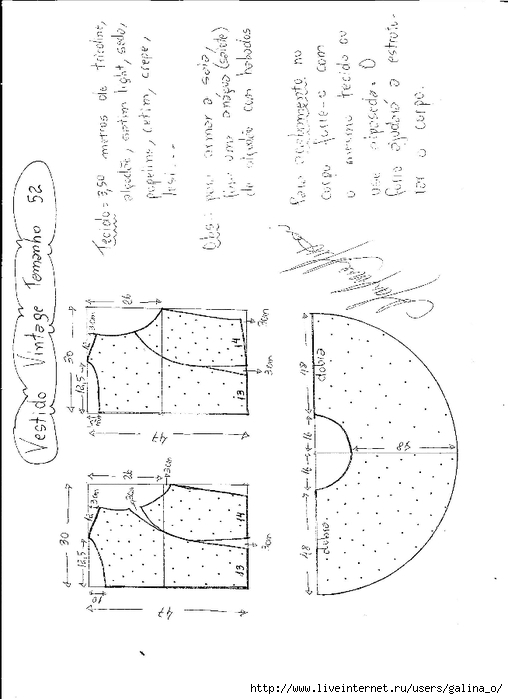 Vestido Vintage Tamanho 52
Tecido = 3,50 metros de tricoline,
algodão, cetim light, seda,
popeline, cetim, crepe,
lesi...
Obs: para armar a saia,
uma anágua (saiote)
de algodão com babados
Para acabamento no
corpo forre-o com
o mesmo tecido ou
use entretela. O
forro ajudará a estrutu-
rar o corpo.
30
12,5
12
3cm
26
47
13
14
3cm
3cm
30
12,5
12
3cm
26
3cm
10
47
13
14
3cm
48
16
16
48
dobra
dobra
48
http://www.liveinternet.ru/users/galina_o/